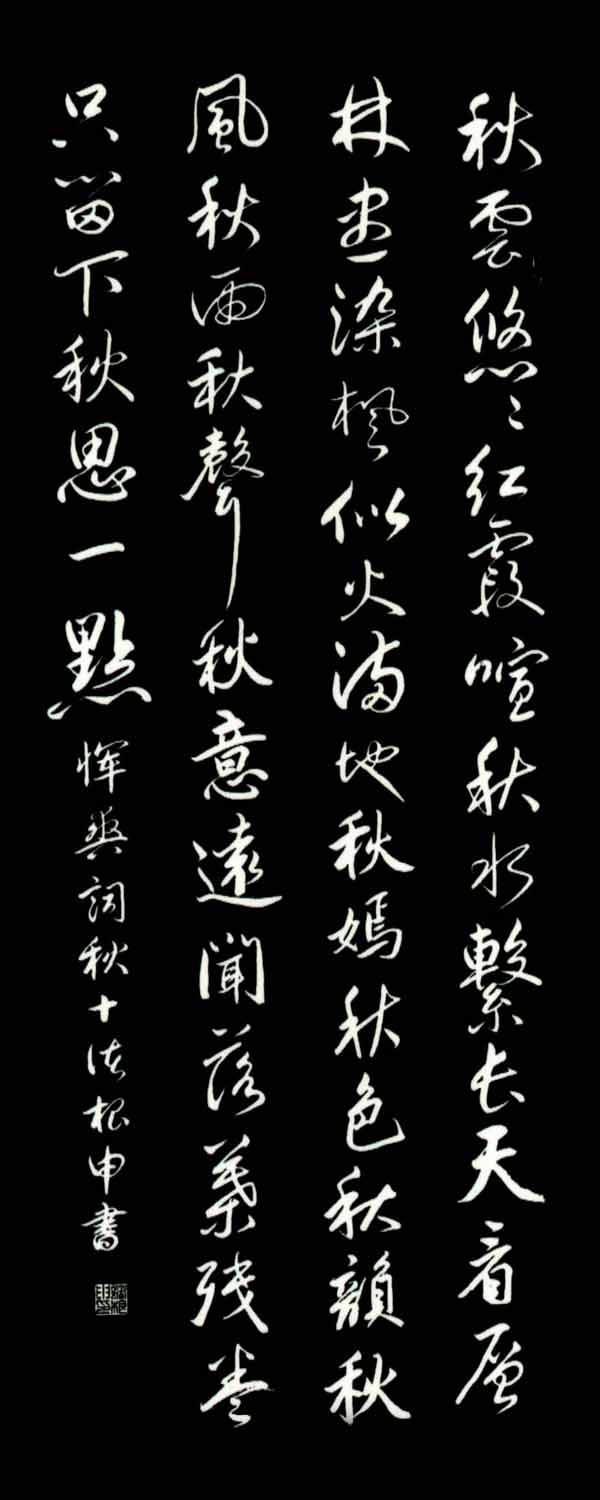 秋雲悠々紅霞喧秋水繫长天看层
林盡染楓似火满地秋嫣秋色秋韻秋
風秋雨秋聲秋意遠聞落葉残卷
只留下秋思一點
恽興詞秋十 根申書